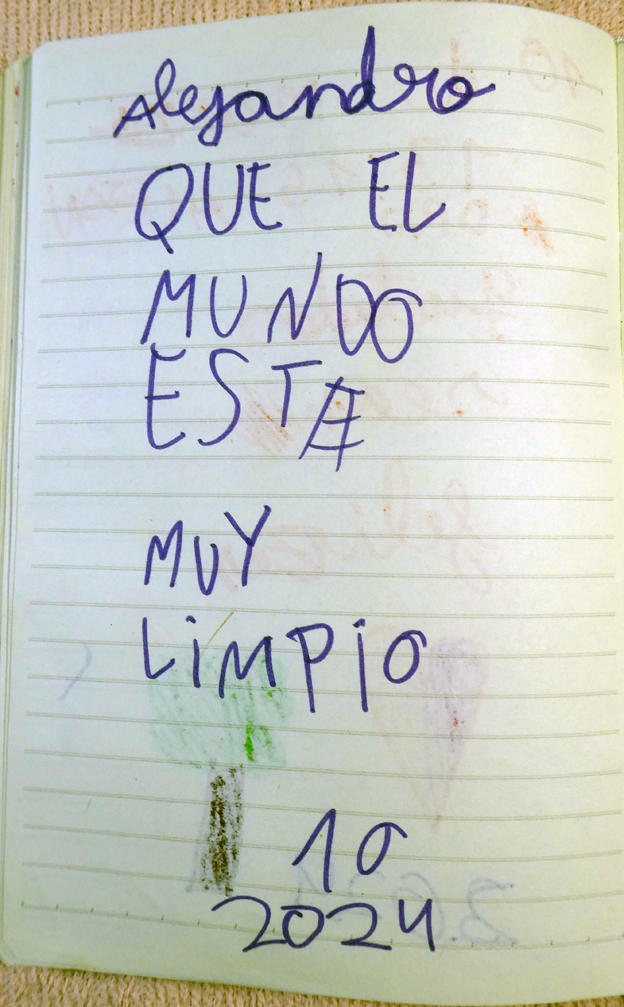 Alejandro
QUE EL
MUNDO
ESTE
MUY
LiMPiO
10
2024